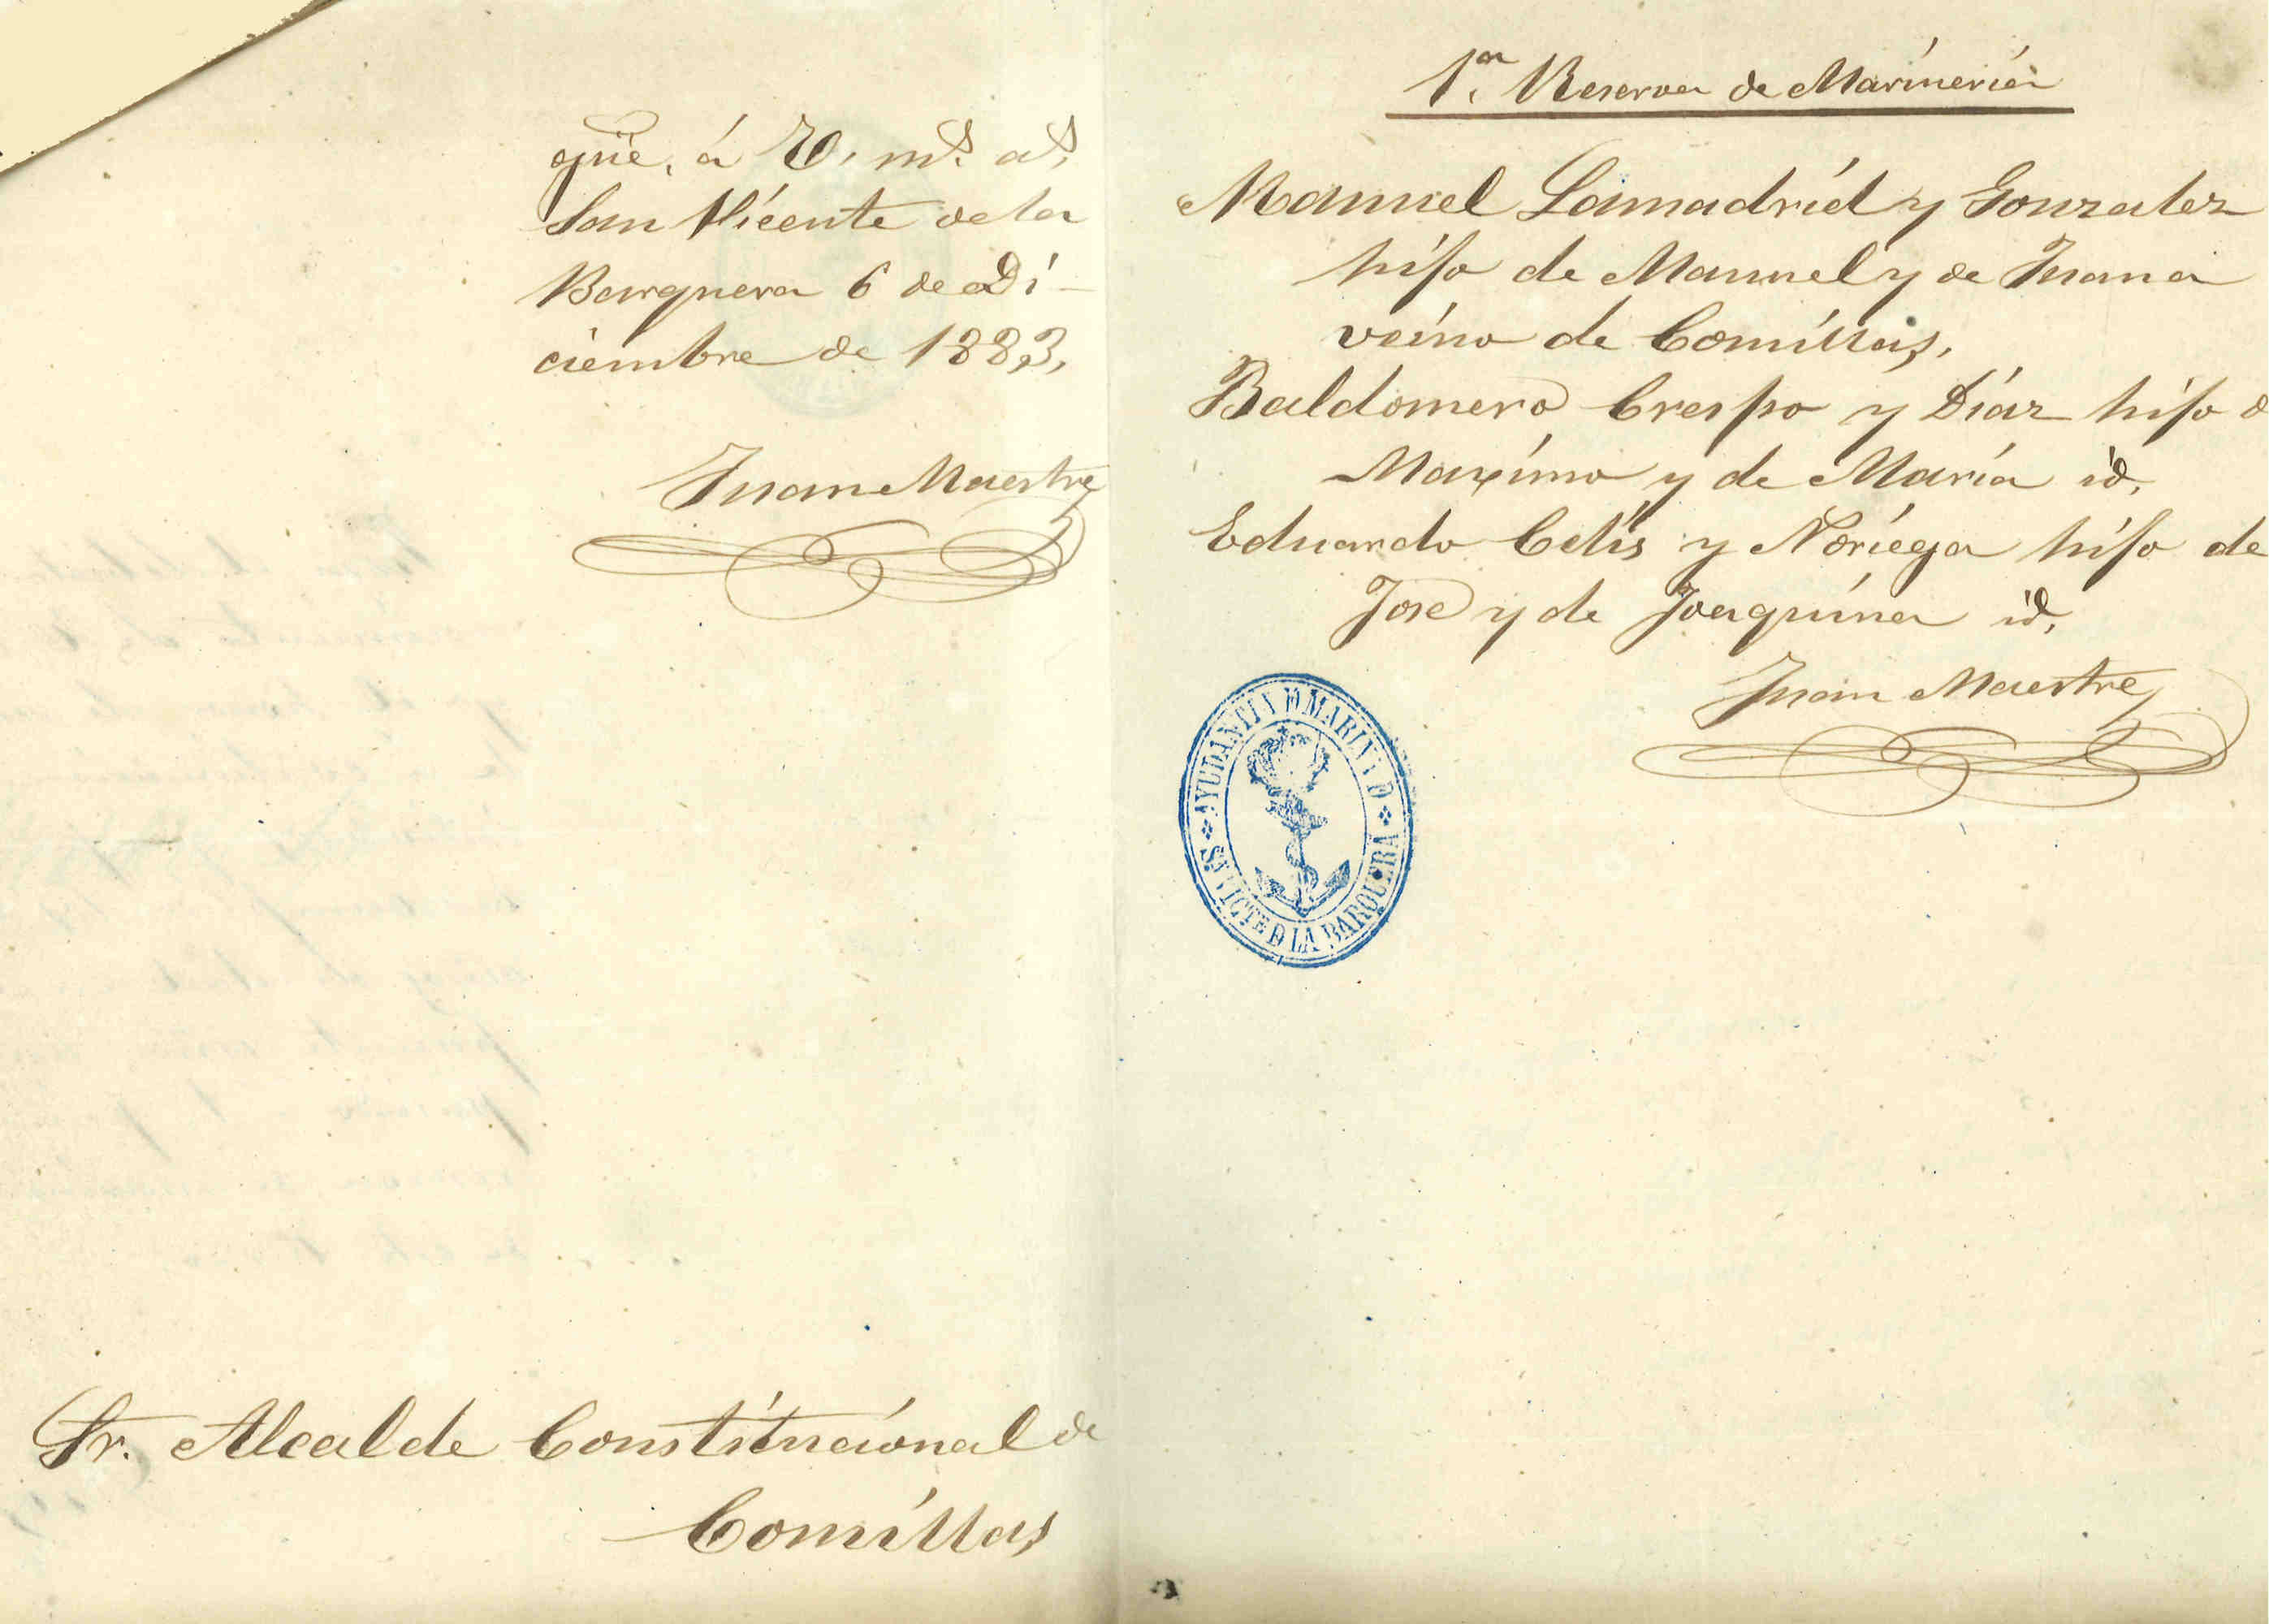 que, á V. ms. as.
San Vicente de la
Barquera 6 de Di-
ciembre de 1883,
Juan Maestre
Sr. Alcalde Constitucional de
Comillas
1ª. Reserva de Marinería
Manuel Lamadrid y Gonzalez
hijo de Manuel y de Juana
veino de Comillas,
Baldomero Crespo y Díaz hijo d
Maximo y de María id,
Eduardo Celis y Noriega hijo de
José y de Joaquina id,
Juan Maestre
AYUDANTIA D MARINA D
SN VICTE D LA BARQUERA